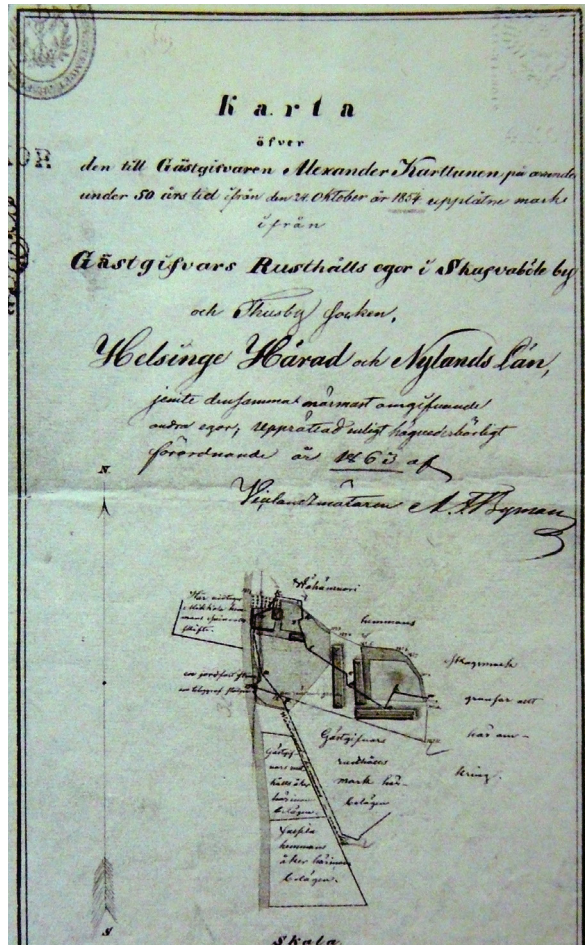 Karta
öfver
den till Gästgifvaren Alexander Karttunen på arende
under 50 års tid ifrån den 24 Oktober år 1854 upplåtne mark
ifrån
Gästgifvars Rusthålls egor i Skafvaböle by
och Thusby socken,
Helsinge Härad och Nylands Län,
jemte densamma närmast omgifvande
andra egor; upprättad enligt högvederbörligt
förordnande år 1863 af
Vicelandtmätaren A. F. Byman
N
hemmans
Skogsmark
gränsar allt
här om-
kring.
Gästgifvars
rusthålls
mark här-
belägen
Gästgif-
vars rust
hålls åker
härinom
belägen.
hemmans
åker härinom
belägen.
S
Skala